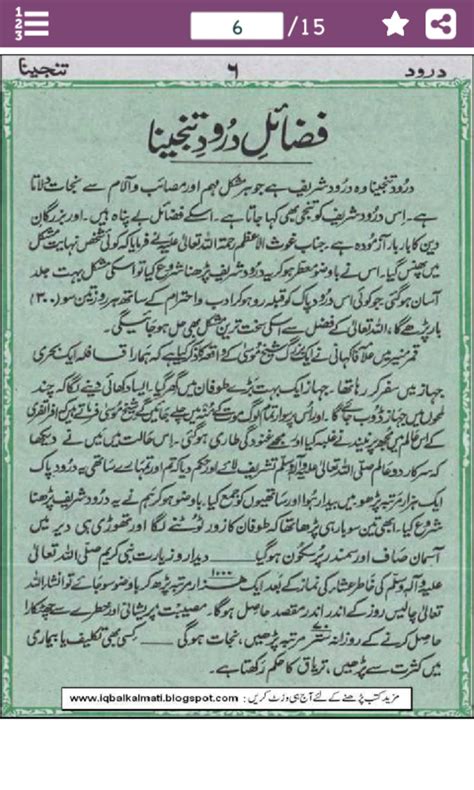 1
2
3
6 /15
درود ۶ تنجینا
فضائلِ درُود تنجینا
درُود تنجینا وہ درُود شریف ہے جو ہر مشکل مہم اور مصائب و آلام سے نجات دلاتا
ہے۔ اِس درُود شریف کو تنجی بھی کہا جاتا ہے۔ اسکے فضائل بے پناہ ہیں۔ اور بزرگانِ
دین کا بار بار آزمودہ ہے۔ جناب غوث الاعظم رحمۃ اللہ تعالیٰ علیہ نے فرمایا کہ کوئی شخص نہایت مشکل
میں پھنس گیا۔ اس نے باوضو معطر ہو کر یہ درُود شریف پڑھنا شروع کیا تو اسکی مشکل بہت جلد
آسان ہوگئی۔ جو کوئی اس درُود پاک کو قبلہ رو ہو کر ادب و احترام کے ساتھ ہر روز تین سو (۳۰۰)
بار پڑھے گا، اللہ تعالیٰ کے فضل سے اسکی سخت ترین مشکل بھی حل ہو جائیگی۔
میں علامہ فاکہانی نے ایک بزرگ شیخ موسیٰ کے واقعہ کا ذکر کیا ہے کہ ہمارا قافلہ ایک بحری
جہاز میں سفر کر رہا تھا۔ جہاز ایک بہت بڑے طوفان میں گھر گیا۔ ایسا دکھائی دینے لگا کہ چند
لمحوں میں جہاز ڈوب جائے گا۔ اور اس پر سوار تمام لوگ موت کے مُنہ میں چلے جائیں گے شیخ موسیٰ فرماتے ہیں افراتفری
کے اس عالم میں مجھ پر نیند نے غلبہ کیا اور مجھے غنودگی طاری ہوگئی۔ اس حالت میں میں نے دیکھا
کہ سرکار دو عالم صلی اللہ تعالیٰ علیہ وآلہٖ وسلم تشریف لائے اور حکم دیا کہ تم اور تمہارے ساتھی یہ درُود پاک
ایک ہزار مرتبہ پڑھو میں بیدار ہوا اور ساتھیوں کو جمع کیا۔ باوضو ہو کر ہم نے یہ درُود شریف پڑھنا
شروع کیا۔ ابھی تین سو بار ہی پڑھا تھا کہ طوفان کا زور ٹوٹنے لگا اور تھوڑی ہی دیر میں
آسمان صاف اور سمندر پُرسکون ہوگیا ____ دیدار و زیارت نبی کریم صلی اللہ تعالیٰ
علیہ وآلہٖ وسلم کی خاطر عشاء کی نماز کے بعد ایک ہزار ۱۰۰۰ مرتبہ پڑھ کر باوضو سو جائے تو انشاء اللہ
تعالیٰ چالیس روز کے اندر اندر مقصد حاصل ہوگا۔ مصیبت پریشانی اور خطرے سے چھٹکارا
حاصل کرنے کے روزانہ مرتبہ پڑھیں، نجات ہوگی ____ کسی بھی تکلیف یا بیماری
میں کثرت سے پڑھیں، تریاق کا حکم رکھتا ہے۔
مزید کتب پڑھنے کے لئے آج ہی وزٹ کریں : www.iqbalkalmati.blogspot.com